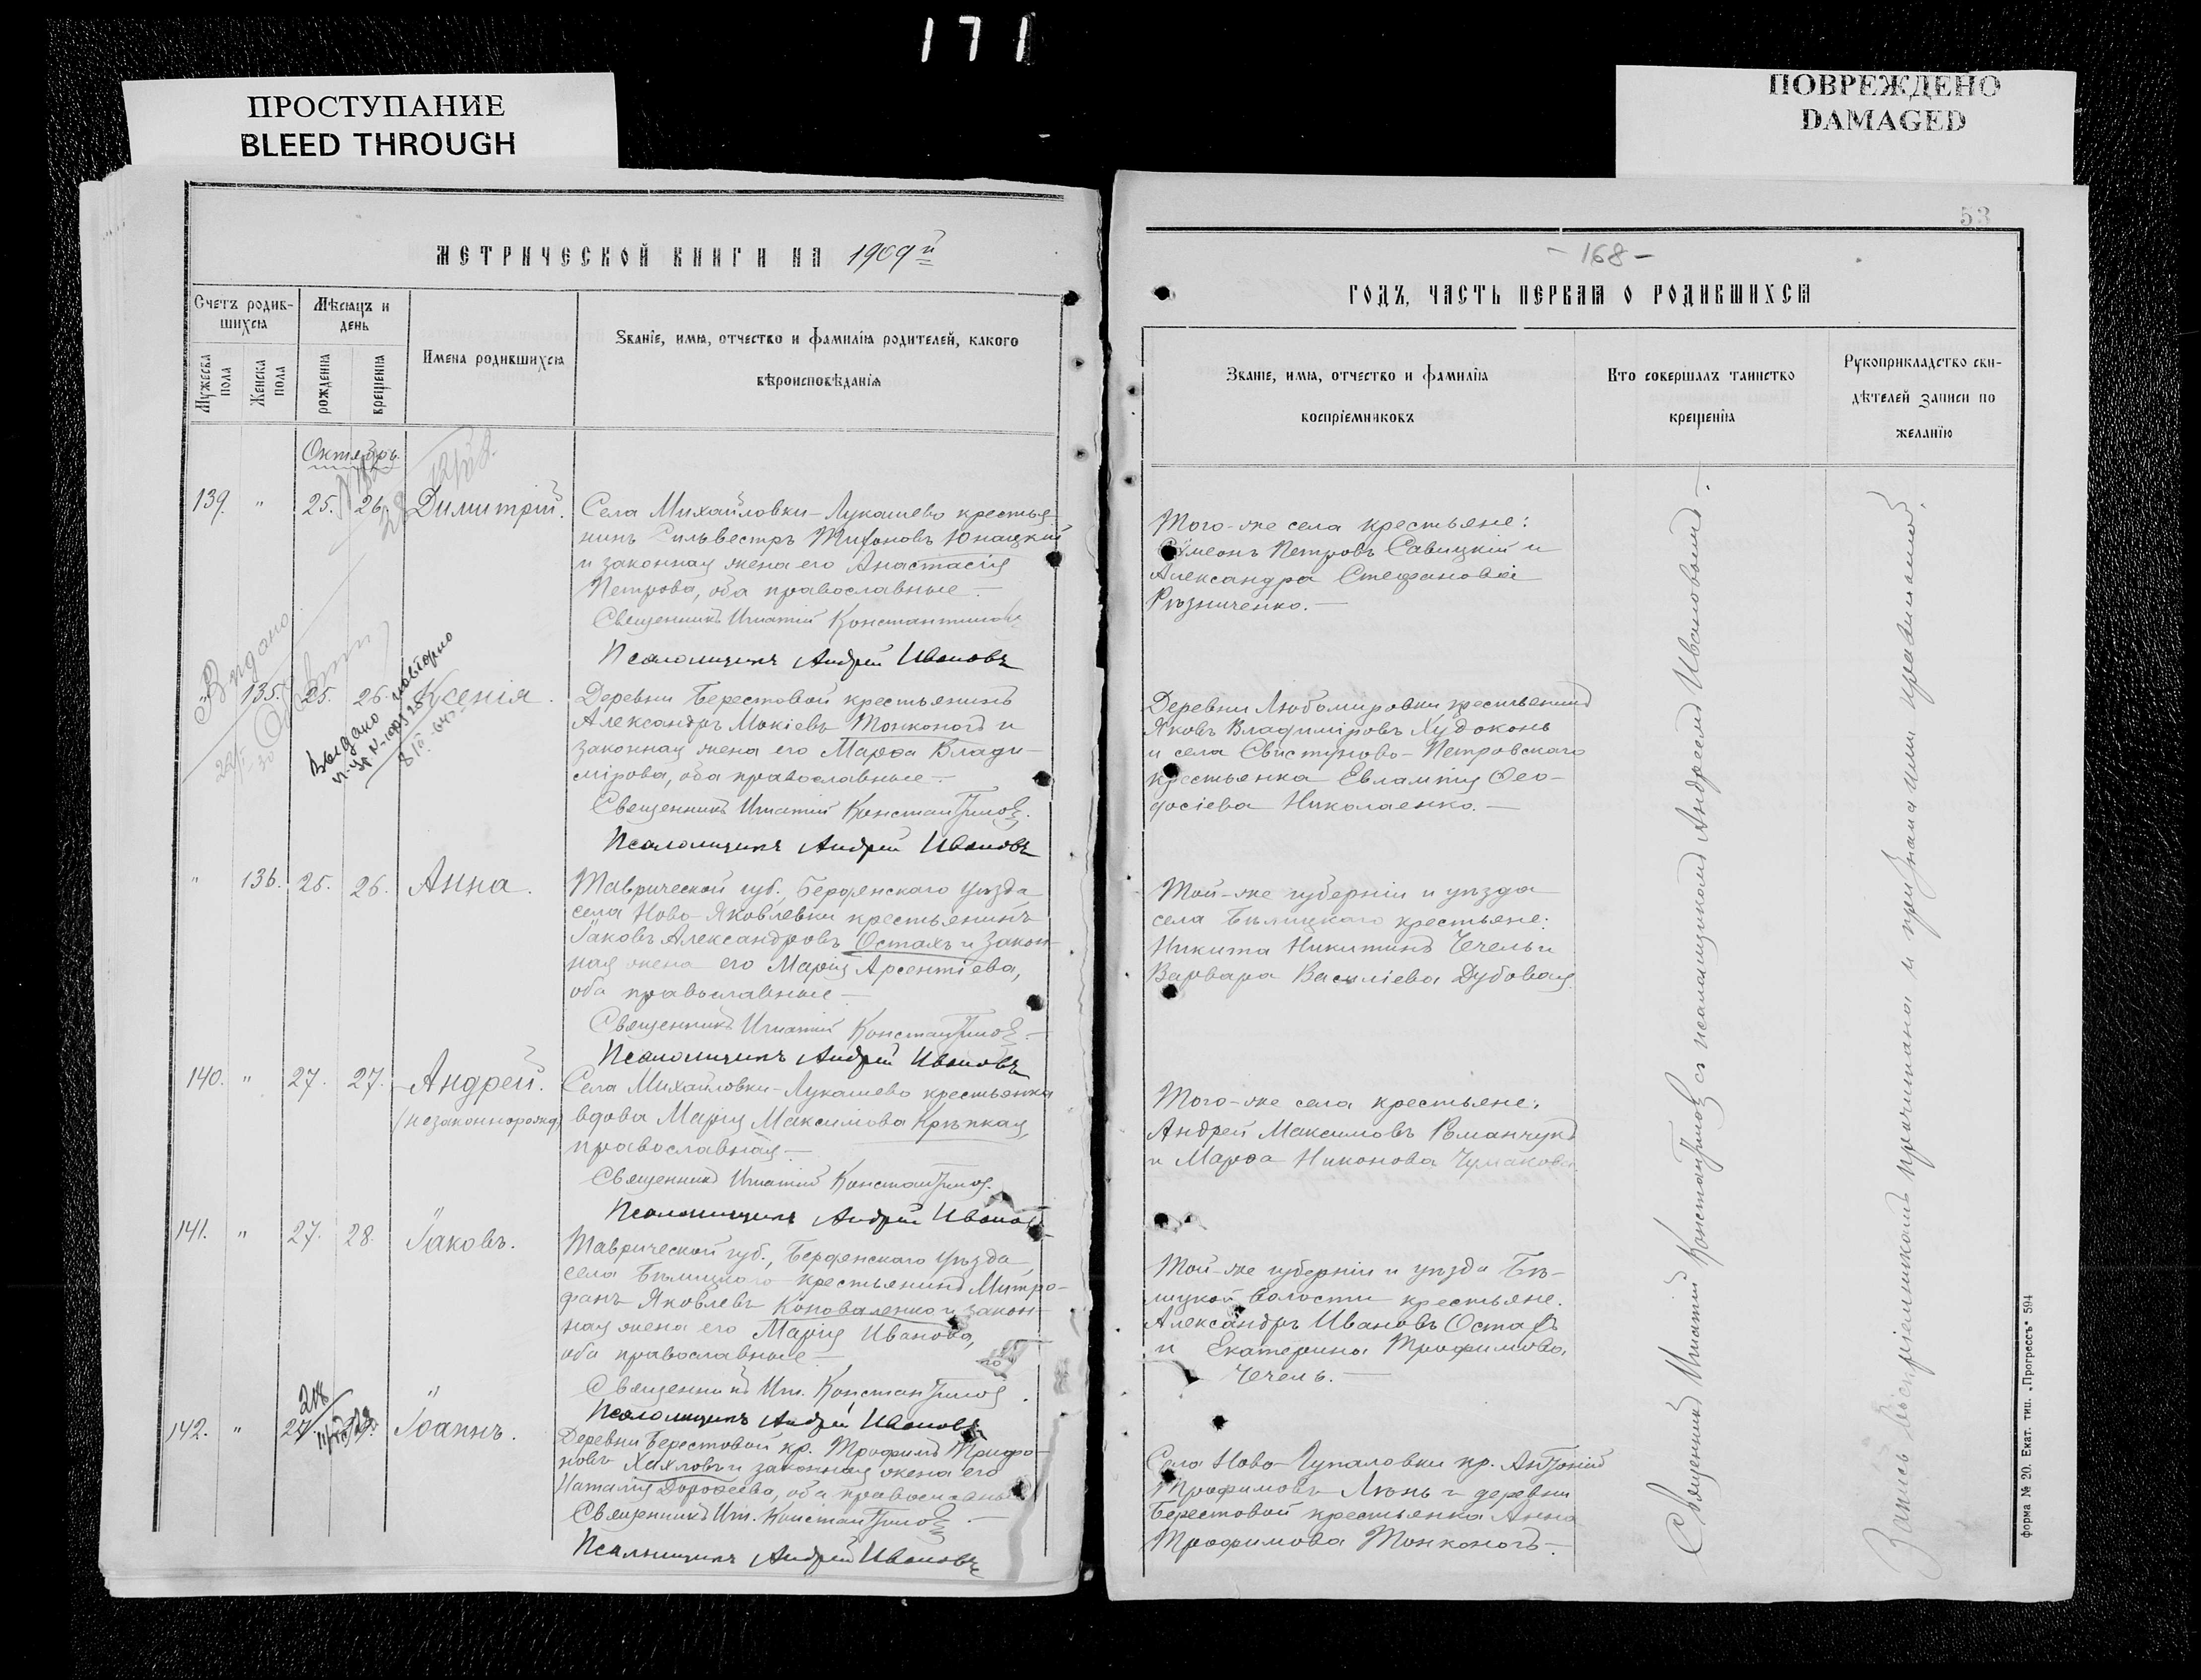 171
ПРОСТУПАНИЕ
BLEED THROUGH
ПОВРЕЖДЕНО
DAMAGED
МЕТРИЧЕСКОЙ КНИГИ НА 1909й
Счетъ родив-
шихся
Мѣсяцъ и
день
Имена родившихся
Званіе, имя, отчество и фамилія родителей, какого
вѣроисповѣданія
Мужеска
пола
Женска
пола
рожденія
крещенія
Октябрь
139. " 25. 26. Димитрій.
Села Михайловки-Лукашево крестья-
нинъ Сильвестръ Тихоновъ Юнацкій
и законная жена его Анастасія
Петрова, оба православные.—
Священникъ Игнатій Константиновъ
Псаломщикъ Андрей Ивановъ
Выдано
" 135. 25. 26. Ксенія.
Выдано повторно
Деревни Берестовой крестьянинъ
Александръ Мокіевъ Тонконогъ и
законная жена его Марѳа Влади-
мірова, оба православные.—
Священникъ Игнатій Константиновъ.
Псаломщикъ Андрей Ивановъ
" 136. 25. 26. Анна.
Таврической губ., Бердянскаго уѣзда
села Ново-Яковлевки крестьянинъ
Іаковъ Александровъ Остахъ и закон-
ная жена его Марія Арсентіева,
оба православные.—
Священникъ Игнатій Константиновъ.—
Псаломщикъ Андрей Ивановъ
140. " 27. 27. Андрей.
(незаконнорожд.)
Села Михайловки-Лукашево крестьянка
вдова Марія Максимова Крѣпкая,
православная.—
Священникъ Игнатій Константиновъ.
Псаломщикъ Андрей Ивановъ
141. " 27. 28. Іаковъ.
Таврической губ., Бердянскаго уѣзда,
села Бѣлицкаго крестьянинъ Митро-
фанъ Яковлевъ Коноваленко и закон-
ная жена его Марія Иванова,
оба православные.—
Священникъ Игн. Константиновъ.
Псаломщикъ Андрей Ивановъ
142. " 27. Іоаннъ.
Деревни Берестовой кр. Трофимъ Трифо-
новъ Хахловъ и законная жена его
Наталія Дороѳеева, оба православные
Священникъ Игн. Константиновъ.—
Псаломщикъ Андрей Ивановъ
53
- 168 -
ГОДЪ, ЧАСТЬ ПЕРВАЯ О РОДИВШИХСЯ
Званіе, имя, отчество и фамилія
воспріемниковъ
Кто совершалъ таинство
крещенія
Рукоприкладство сви-
дѣтелей записи по
желанію
Того-же села крестьяне:
Сѵмеонъ Петровъ Савицкій и
Александра Стефанова
Рѣзниченко.—
Деревни Любомировки крестьянинъ
Яковъ Владиміровъ Худоконь
и села Свистуново-Петровскаго
крестьянка Евлампія Ѳео-
досіева Николаенко.—
Той-же губерніи и уѣзда
села Бѣлицкаго крестьяне:
Никита Никитинъ Чечель и
Варвара Василіева Дубовая
Того-же села крестьяне:
Андрей Максимовъ Романчукъ
и Марѳа Никонова Чумакова.
Той-же губерніи и уѣзда Бѣ-
лицкой волости крестьяне:
Александръ Ивановъ Остахъ
и Екатерина Трофимова
Чечель.—
Села Ново-Гупаловки кр. Антоній
Трофимовъ Линь и деревни
Берестовой крестьянка Анна
Трофимова Тонконогъ.—
Священникъ Игнатій Константиновъ съ псаломщикомъ Андреемъ Ивановымъ.—
Запись воспріемниками прочитана и признана ими правильной.
Форма № 20. Екат. тип. „Прогрессъ" 594